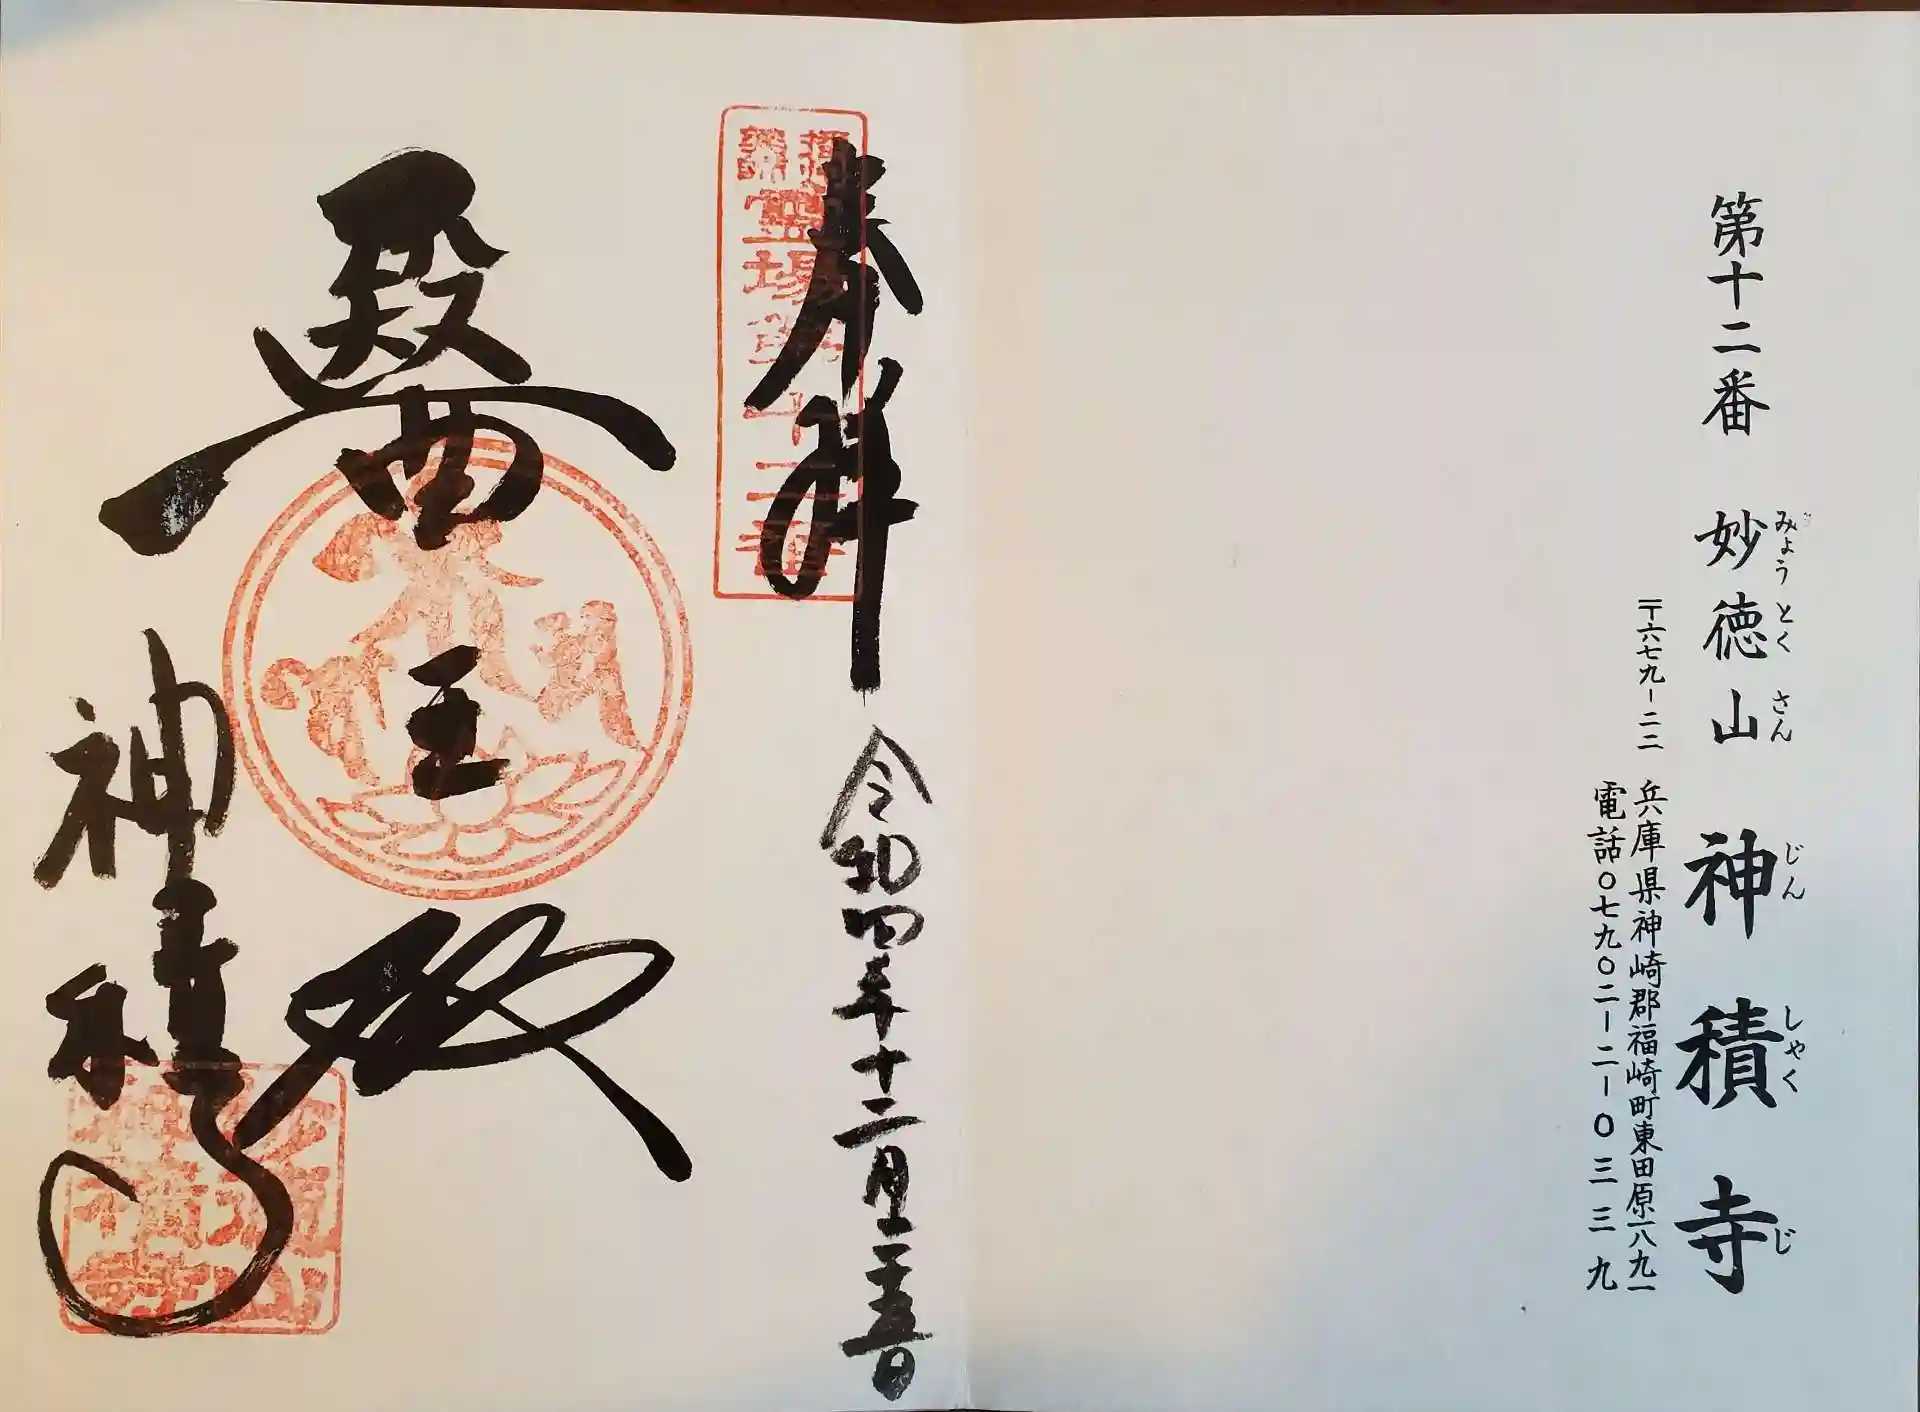 第十二番 妙徳山 神積寺
みょうとくさん じんしゃくじ
〒六七九-二二 兵庫県神崎郡福崎町東田原一八九一
電話〇七九〇二-二-〇三三九
奉拝 令和四年十二月二十五日
霊場第十二番
醫王殿
神積寺
妙徳山神積寺